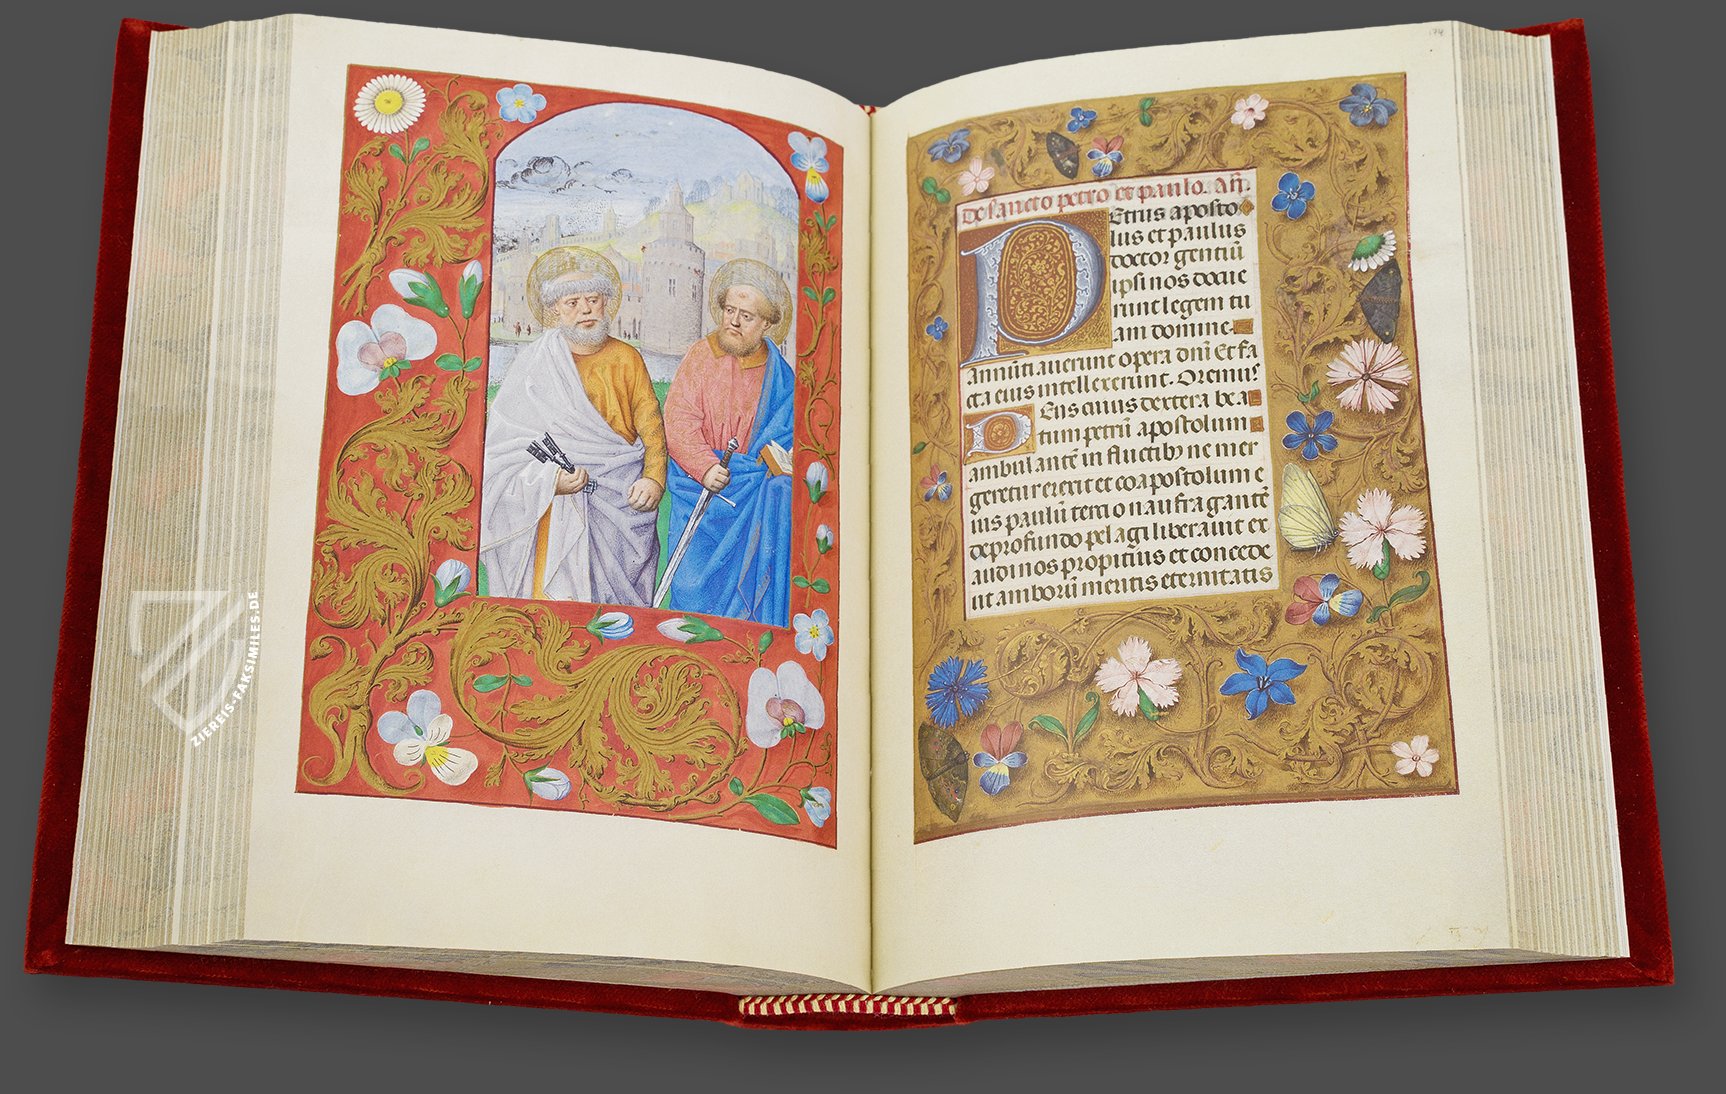 174
De sancto petro et paulo. Añ.
PEtrus aposto
lus et paulus
doctor gentiū
ipsi nos docue
runt legem tu
am domine.
Annūtiauerunt opera dn̄i Et fa
cta eius intellexerunt. Oremus
DEus cuius dextera bea
tum petrū apostolum
ambulantē in fluctibꝫ ne mer
geretur erexit et coapostolum e
ius paulū tertio naufragantē
de profundo pelagi liberauit ex
audi nos propitius et concede
ut amborū mentis eternitatis
ZIEREIS-FAKSIMILES.DE